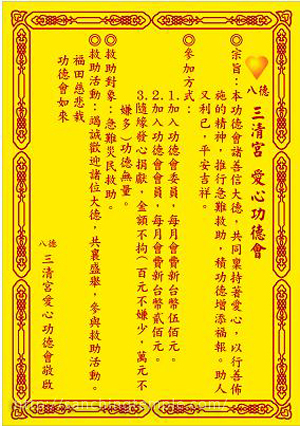 八德 三清宮 愛心功德會
◎宗旨：本功德會諸善信大德，共同稟持著愛心，以行善佈
施的精神，推行急難救助，積功德增添福報。助人
又利己，平安吉祥。
◎參加方式：
1.加入功德會委員，每月會費新台幣伍佰元。
2.加入功德會會員，每月會費新台幣貳佰元。
3.隨緣發心捐獻，金額不拘（百元不嫌少，萬元不
嫌多）功德無量。
◎救助對象：急難災民救助。
◎救助活動：竭誠歡迎諸位大德，共襄盛舉，參與救助活動。
福田慈悲栽
功德會如來
八德 三清宮愛心功德會敬啟